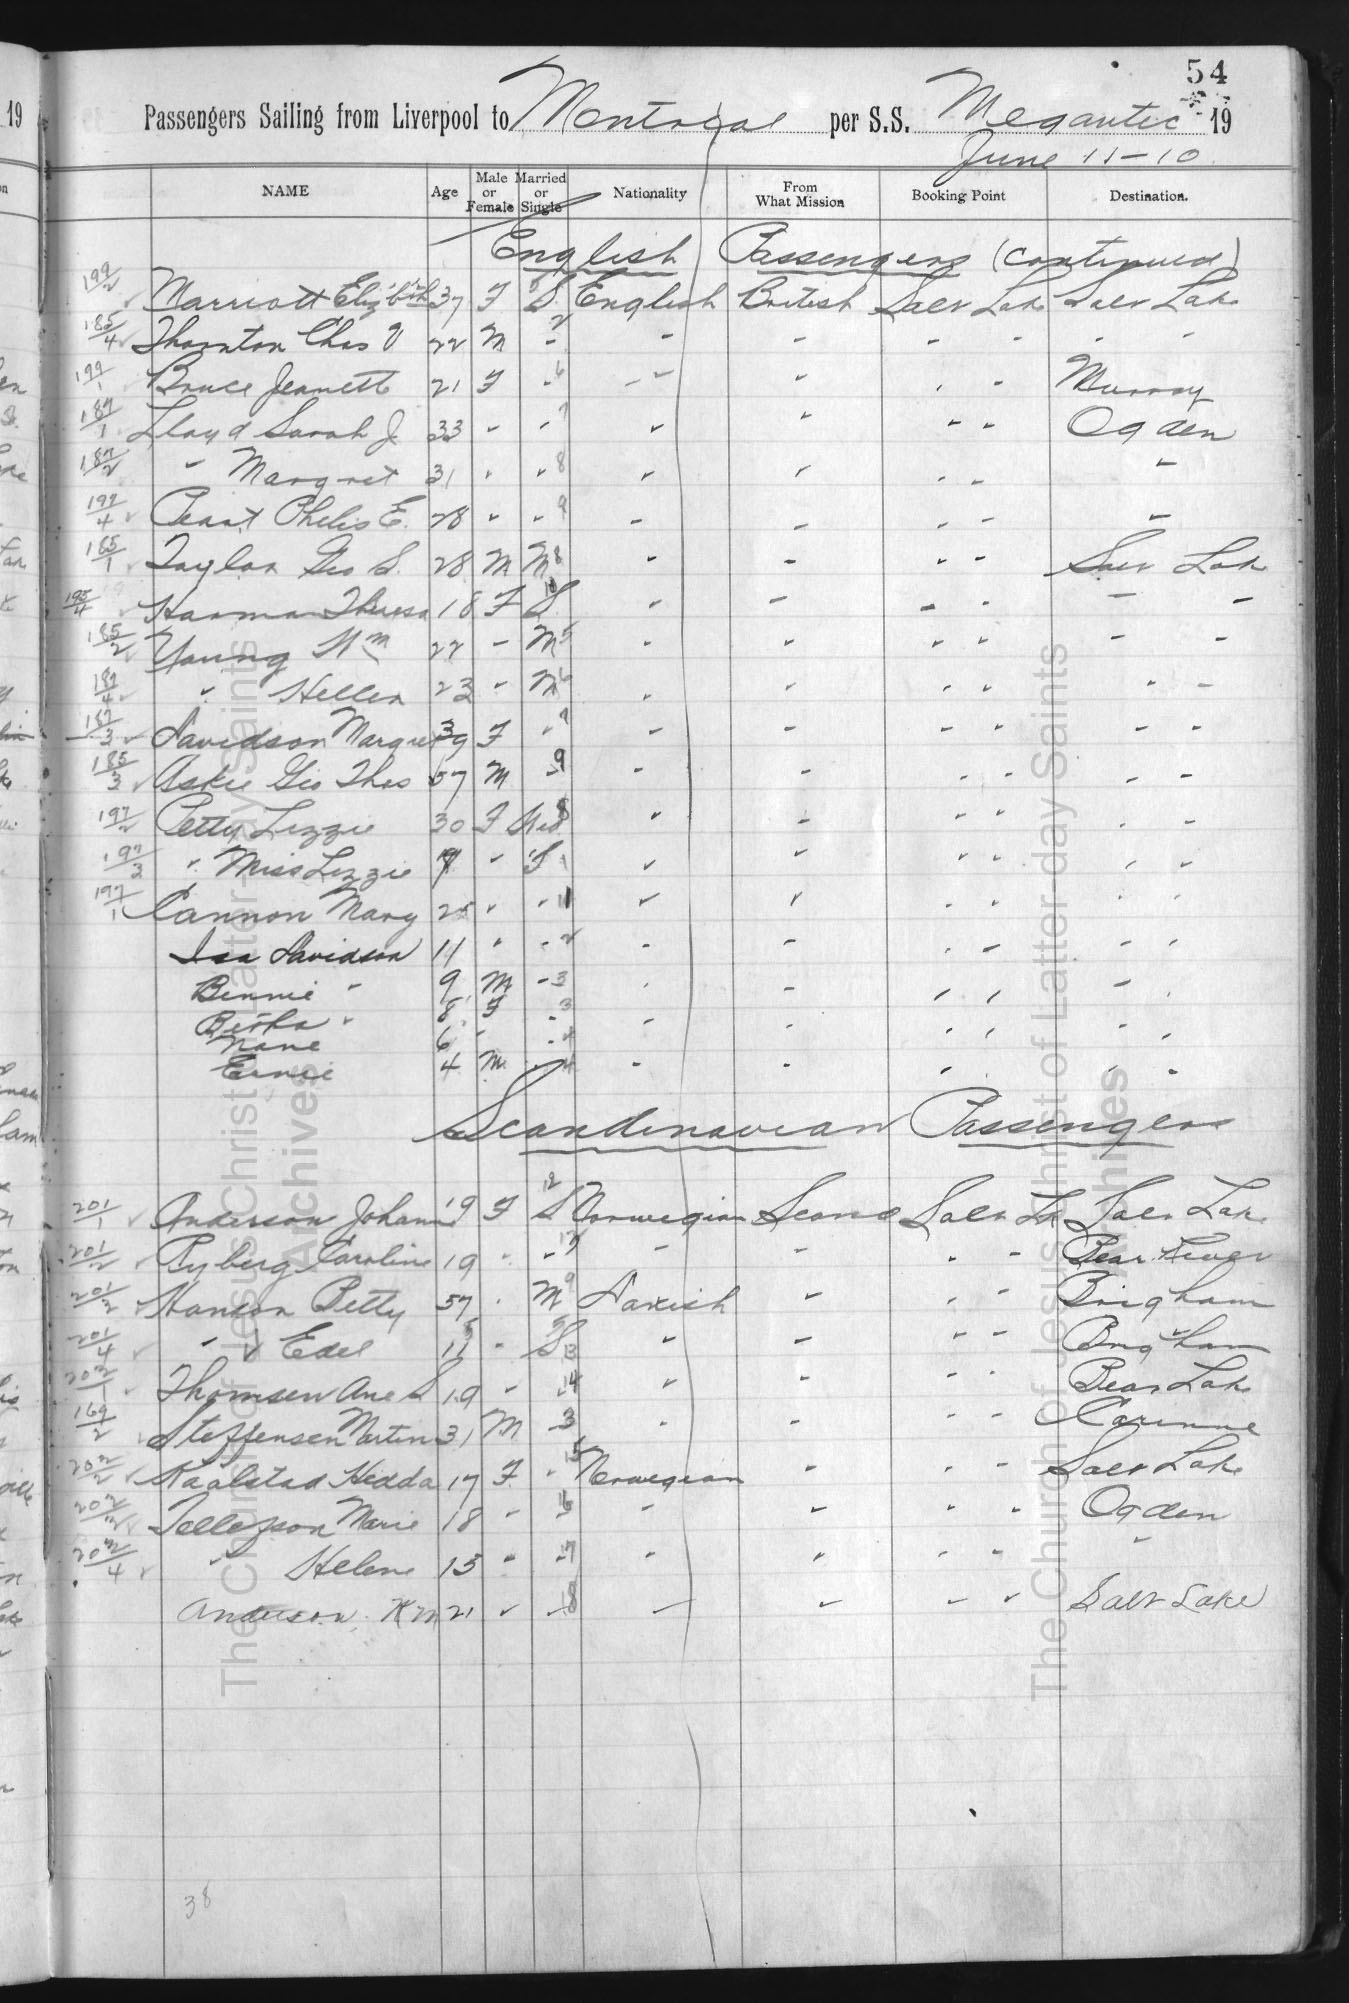 54
19
Passengers Sailing from Liverpool to Montreal per S.S. Megantic 19
June 11-10
NAME Age Male or Female Married or Single Nationality From What Mission Booking Point Destination.
English Passengers (continued)
199/2 Marriott Elizbth 37 F S English British Salt Lake Salt Lake
185/4 Thornton Chas V 22 M " " " " " "
199/1 Bruce Jeanett 21 F " " " " " Murray
187/1 Lloyd Sarah J. 33 " " " " " " Ogden
187/2 " Margret 31 " " " " " " "
197/4 Peart Phelis E. 28 " " " " " " "
185/1 Taylor Geo S. 28 M M " " " " Salt Lake
195/4 Harman Theresa 18 F S " " " " " "
185/2 Young Wm 22 " M " " " " " "
187/4 " Hellen 23 " M " " " " " "
187/3 Davidson Margret 39 F " " " " " " "
185/3 Askie Geo Thos 57 M " " " " " " "
197/2 Petty Lizzie 30 F Wed " " " " " "
197/3 " Miss Lizzie " S " " " " " "
197/1 Cannon Mary 25 " " " " " " " "
Isa Davidson 11 " " " " " " " "
Bennie " 9 M " " " " " " "
Berta " 8 F "
Nane 6 " " " " " " " "
Ernie 4 M " " " " " " "
Scandinavian Passengers
201/1 Anderson Johann 19 F S Norwegian Scand Salt Lk Salt Lake
201/2 Ryberg Caroline 19 " " " " " " Bear River
201/3 Hanson Betty 57 " M Danish " " " Brigham
201/4 " Edel " S " " " " Brigham
202/1 Thomsen Ane S 19 " " " " " " Bear Lake
169/2 Steffensen Martin 31 M " " " " " Corinne
202/2 Kaalstad Hedda 17 F " Norwegian " " " Salt Lake
202/3 Tellefson Marie 18 " " " " " " Ogden
202/4 " Helene 13 " " " " " " "
Anderson, 21 " " " " " " Salt Lake
38
The Church of Jesus Christ of Latter-day Saints
Archives
The Church of Jesus Christ of Latter-day Saints
Archives